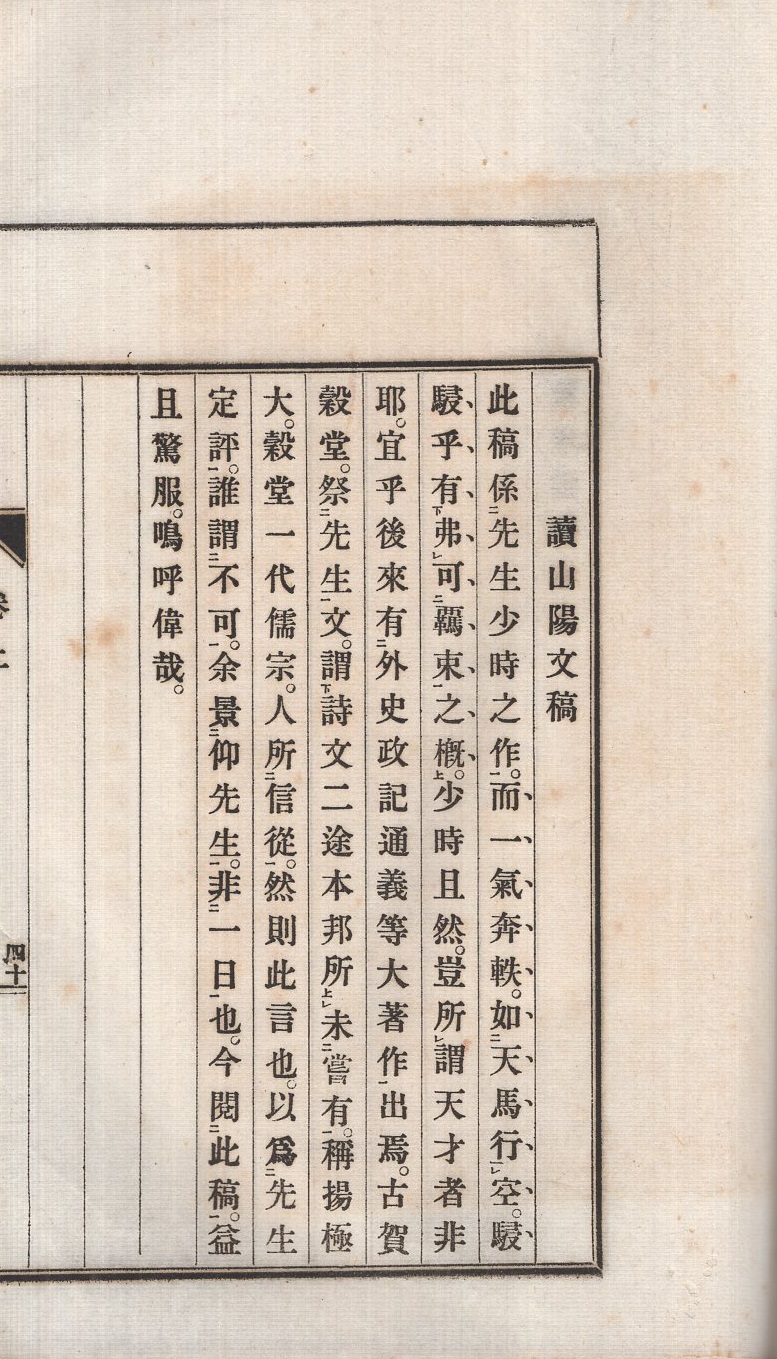 讀山陽文稿
此稿係㆓先生少時之作㆒。而一氣奔軼。如㆓天馬行㆒㆑空。駸
駸乎有㆘弗㆑可㆓羈束㆒之槪㆖。少時且然。豈所㆑謂天才者非
耶。宜乎後來有㆓外史政記通義等大著作㆒出焉。古賀
穀堂。祭㆓先生㆒文。謂㆘詩文二途本邦所㆖㆑未㆓嘗有㆒。稱揚極
大。穀堂一代儒宗。人所㆓信從㆒。然則此言也。以爲㆓先生
定評㆒。誰謂㆓不可㆒。余景㆓仰先生㆒。非㆓一日㆒也。今閱㆓此稿㆒。益
且驚服。嗚呼偉哉。
四十